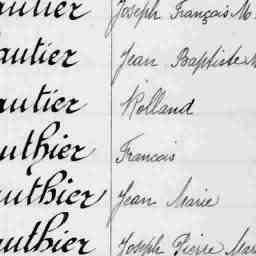 autier Joseph François M
autier Jean Baptiste M
autier Rolland
uthier Francois
uthier Jean Marie
uthier Joseph Pierre Mar